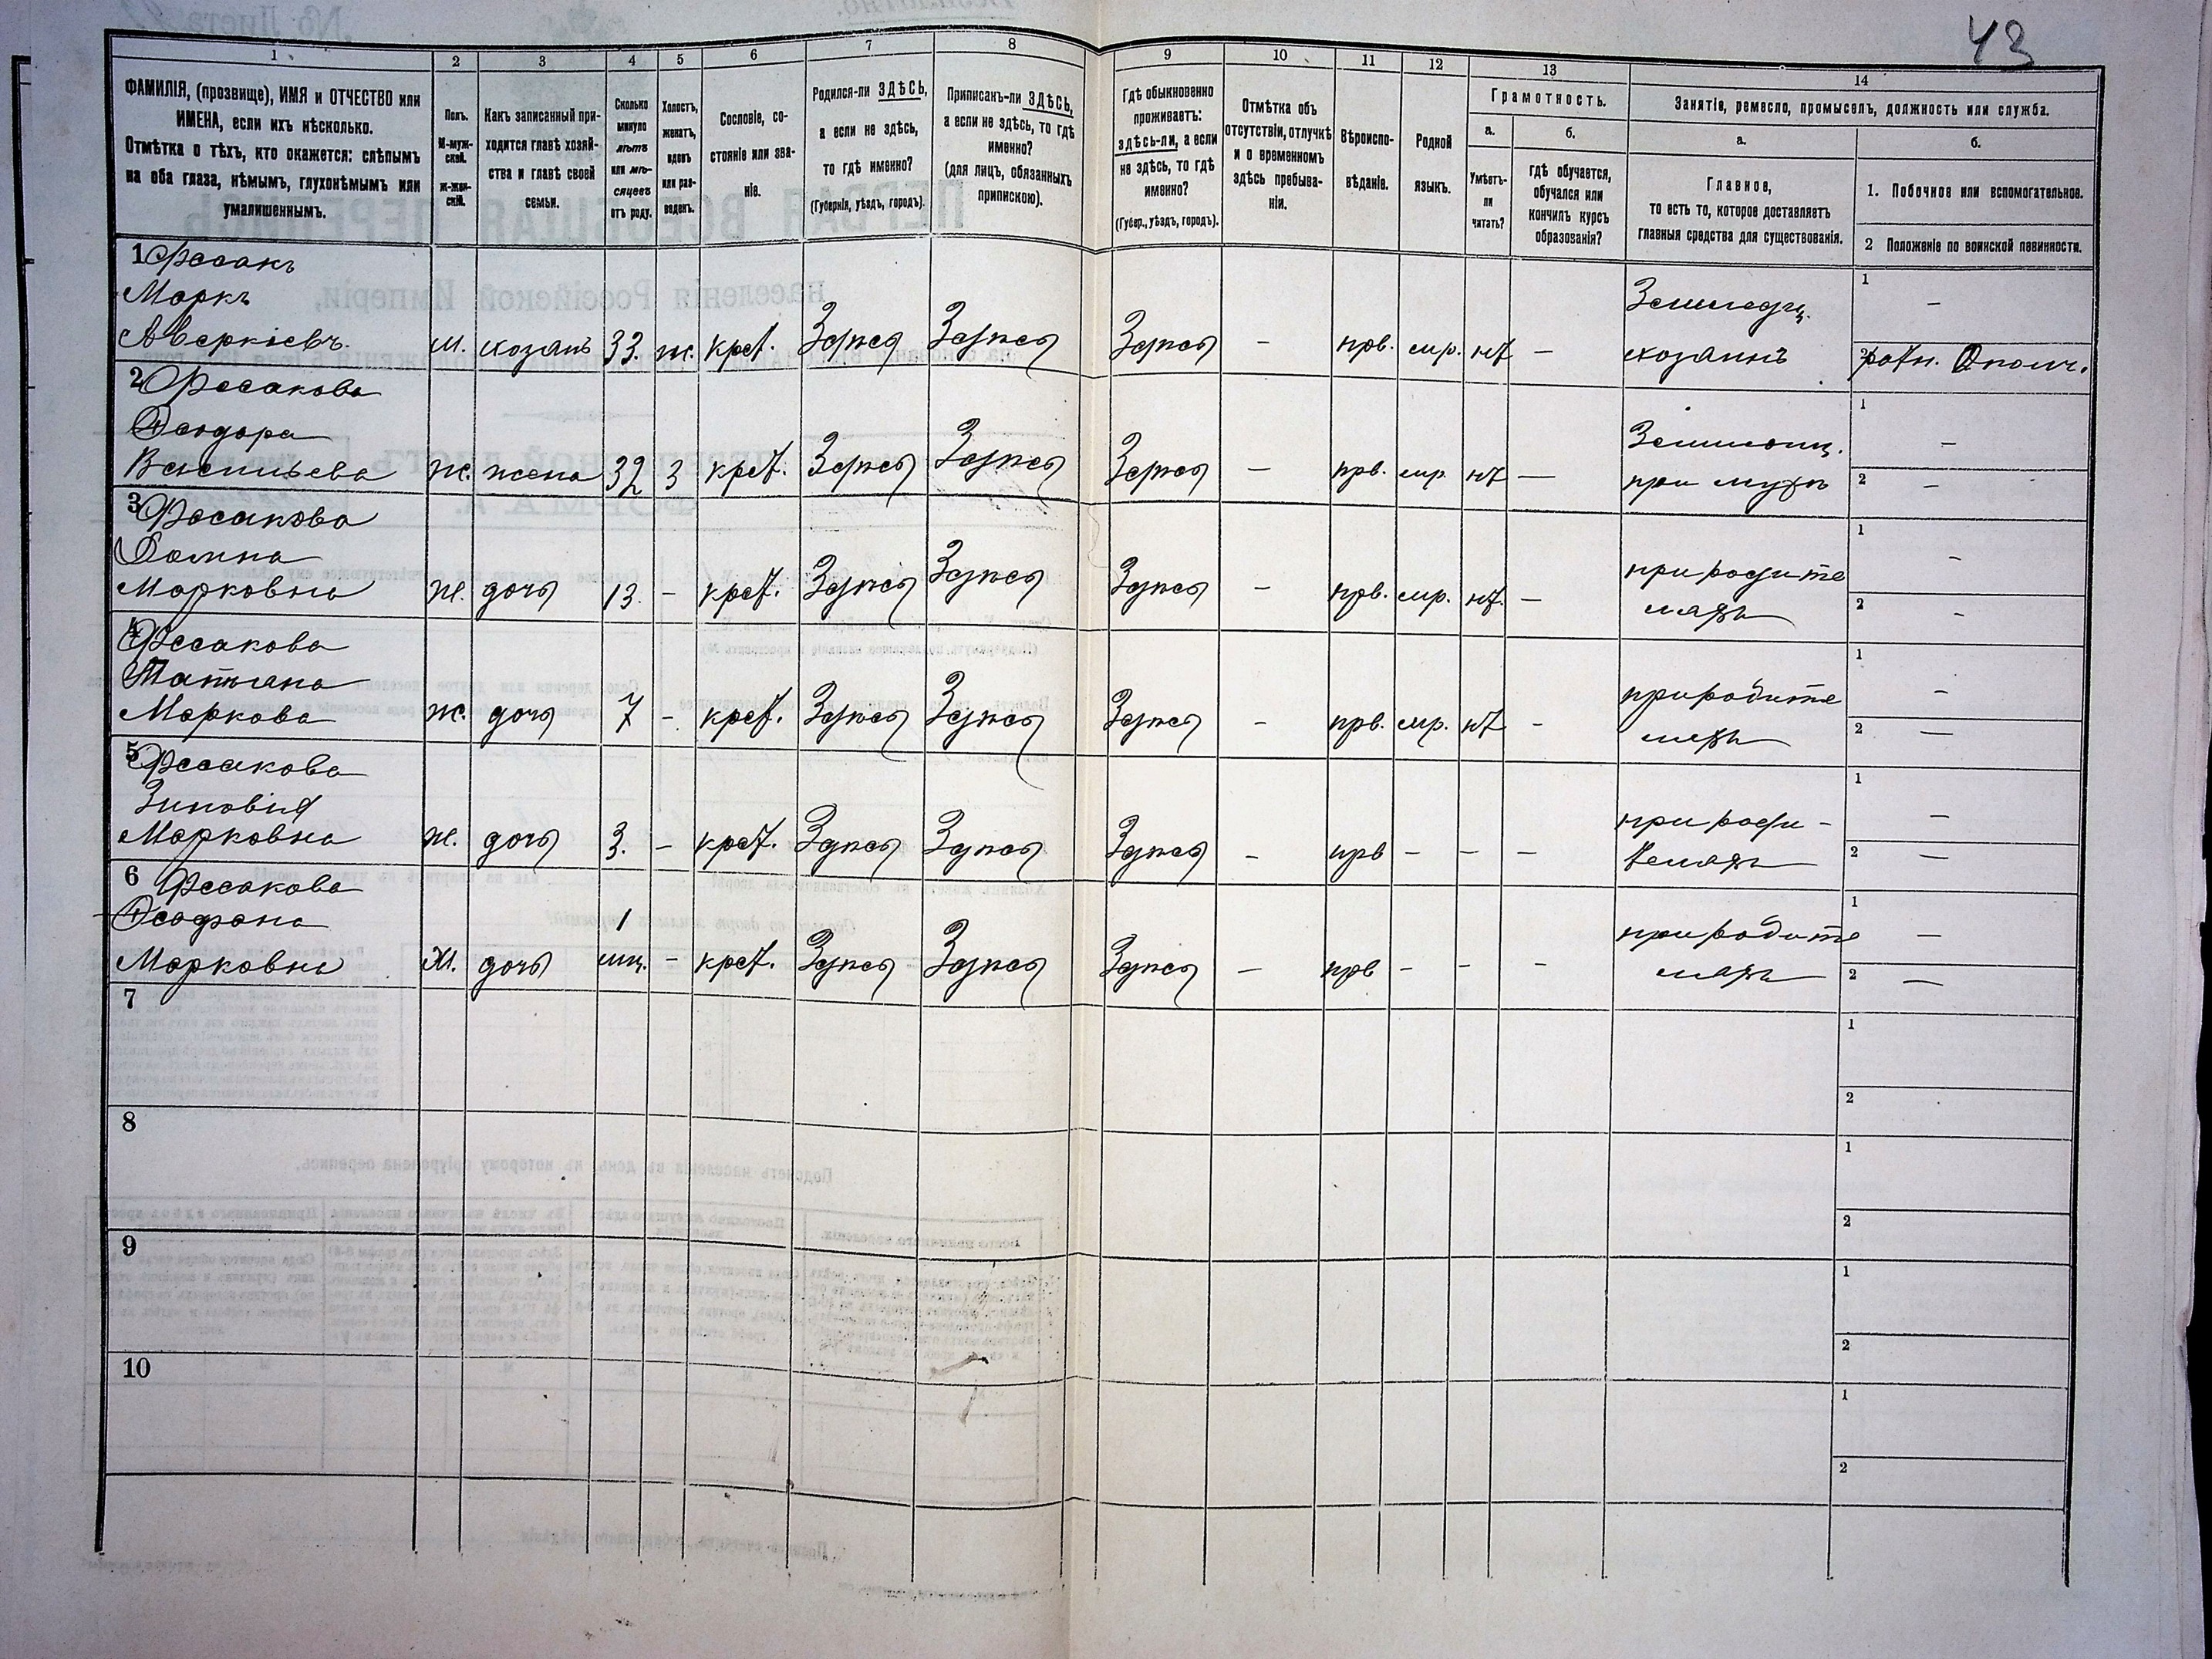 43
1 2 3 4 5 6 7 8 9 10 11 12 13 14
ФАМИЛІЯ, (прозвище), ИМЯ и ОТЧЕСТВО или
ИМЕНА, если ихъ нѣсколько.
Отмѣтка о тѣхъ, кто окажется: слѣпымъ
на оба глаза, нѣмымъ, глухонѣмымъ или
умалишеннымъ.
Полъ.
М-муж-
ской.
ж-жен-
скій.
Какъ записанный при-
ходится главѣ хозяй-
ства и главѣ своей
семьи.
Сколько
минуло
лѣтъ
или мѣ-
сяцевъ
отъ роду.
Холостъ,
женатъ,
вдовъ
или раз-
веденъ.
Сословіе, со-
стояніе или зва-
ніе.
Родился-ли ЗДѢСЬ,
а если не здѣсь,
то гдѣ именно?
(Губернія, уѣздъ, городъ).
Приписанъ-ли ЗДѢСЬ,
а если не здѣсь, то гдѣ
именно?
(для лицъ, обязанныхъ
припискою).
Гдѣ обыкновенно
проживаетъ:
здѣсь-ли, а если
не здѣсь, то гдѣ
именно?
(Губер., уѣздъ, городъ).
Отмѣтка объ
отсутствіи, отлучкѣ
и о временномъ
здѣсь пребыва-
ніи.
Вѣроиспо-
вѣданіе.
Родной
языкъ.
Грамотность.
а.
Умѣетъ-
ли
читать?
б.
гдѣ обучается,
обучался или
кончилъ курсъ
образованія?
Занятіе, ремесло, промыселъ, должность или служба.
а.
Главное,
то есть то, которое доставляетъ
главныя средства для существованія.
б.
1. Побочное или вспомогательное.
2 Положеніе по воинской повинности.
1
Маркъ
Аверкіевъ. м. хозаинъ 33. ж. крет. Здѣсь Здѣсь Здѣсь — прв. мр. нт —
хозаинъ
1 —
2 ратн. Ополч.
2
Феодора
Васильева ж. жена 32 З крет. Здѣсь Здѣсь Здѣсь — прв. мр. нт —
при мужѣ
1 —
2 —
3
Домна
Марковна ж. дочь 13. - крет. Здѣсь Здѣсь Здѣсь — прв. мр. нт. —
при родите
ляхъ
1 -
2 -
4
Татіана
Маркова ж. дочь 7 - крет. Здѣсь Здѣсь Здѣсь - прв. мр. нт -
при родите
ляхъ
1 -
2 —
5
Зиновія
Марковна ж. дочь 3. - крет. Здѣсь Здѣсь Здѣсь - прв - - —
при роди -
теляхъ
1 —
2 —
6
1
Марковна ж. дочь мц. - крет. Здѣсь Здѣсь Здѣсь — прв - - -
при родите
ляхъ
1 —
2 —
7
1
2
8
1
2
9
1
2
10
1
2